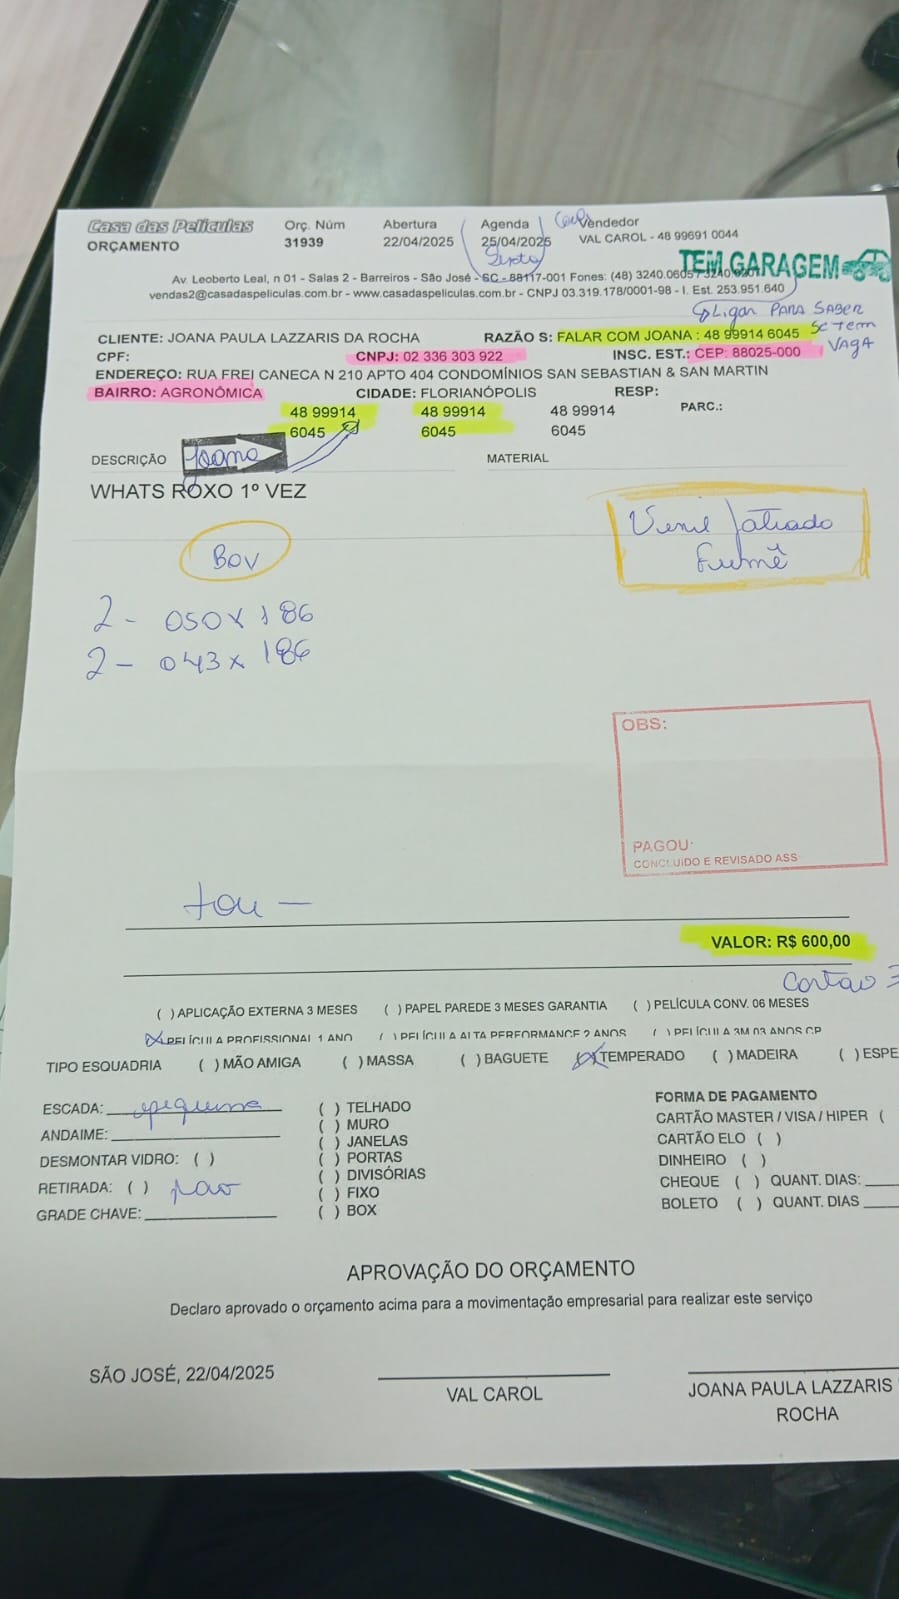 Casa das Películas Orç. Núm Abertura Agenda Vendedor
ORÇAMENTO 31939 22/04/2025 25/04/2025 VAL CAROL - 48 99691 0044
Sexta
TEM GARAGEM
Av. Leoberto Leal, n 01 - Salas 2 - Barreiros - São José - SC - 88117-001 Fones: (48) 3240.0605 / 3240.0201
vendas2@casadaspeliculas.com.br - www.casadaspeliculas.com.br - CNPJ 03.319.178/0001-98 - I. Est. 253.951.640
Ligar PARA SABER
Se Tem
VAGA
CLIENTE: JOANA PAULA LAZZARIS DA ROCHA RAZÃO S: FALAR COM JOANA : 48 99914 6045
CPF: CNPJ: 02 336 303 922 INSC. EST.: CEP: 88025-000
ENDEREÇO: RUA FREI CANECA N 210 APTO 404 CONDOMÍNIOS SAN SEBASTIAN & SAN MARTIN
BAIRRO: AGRONÔMICA CIDADE: FLORIANÓPOLIS RESP:
48 99914 48 99914 48 99914 PARC.:
6045 6045 6045
DESCRIÇÃO Joana MATERIAL
WHATS ROXO 1º VEZ
Vinil Jatiado
Fumê
BOV
2 - 050 x 186
2 - 043 x 186
OBS:
PAGOU:
CONCLUIDO E REVISADO ASS
VALOR: R$ 600,00
Cartão 3
( ) APLICAÇÃO EXTERNA 3 MESES ( ) PAPEL PAREDE 3 MESES GARANTIA ( ) PELÍCULA CONV. 06 MESES
(X) PELÍCULA PROFISSIONAL 1 ANO ( ) PELÍCULA ALTA PERFORMANCE 2 ANOS ( ) PELÍCULA 3M 03 ANOS CP
TIPO ESQUADRIA ( ) MÃO AMIGA ( ) MASSA ( ) BAGUETE (X) TEMPERADO ( ) MADEIRA ( ) ESPE
ESCADA: pequena ( ) TELHADO FORMA DE PAGAMENTO
ANDAIME: ( ) MURO CARTÃO MASTER / VISA / HIPER (
DESMONTAR VIDRO: ( ) ( ) JANELAS CARTÃO ELO ( )
RETIRADA: ( ) não ( ) PORTAS DINHEIRO ( )
GRADE CHAVE: ( ) DIVISÓRIAS CHEQUE ( ) QUANT. DIAS:
( ) FIXO BOLETO ( ) QUANT. DIAS
( ) BOX
APROVAÇÃO DO ORÇAMENTO
Declaro aprovado o orçamento acima para a movimentação empresarial para realizar este serviço
SÃO JOSÉ, 22/04/2025
VAL CAROL JOANA PAULA LAZZARIS
ROCHA